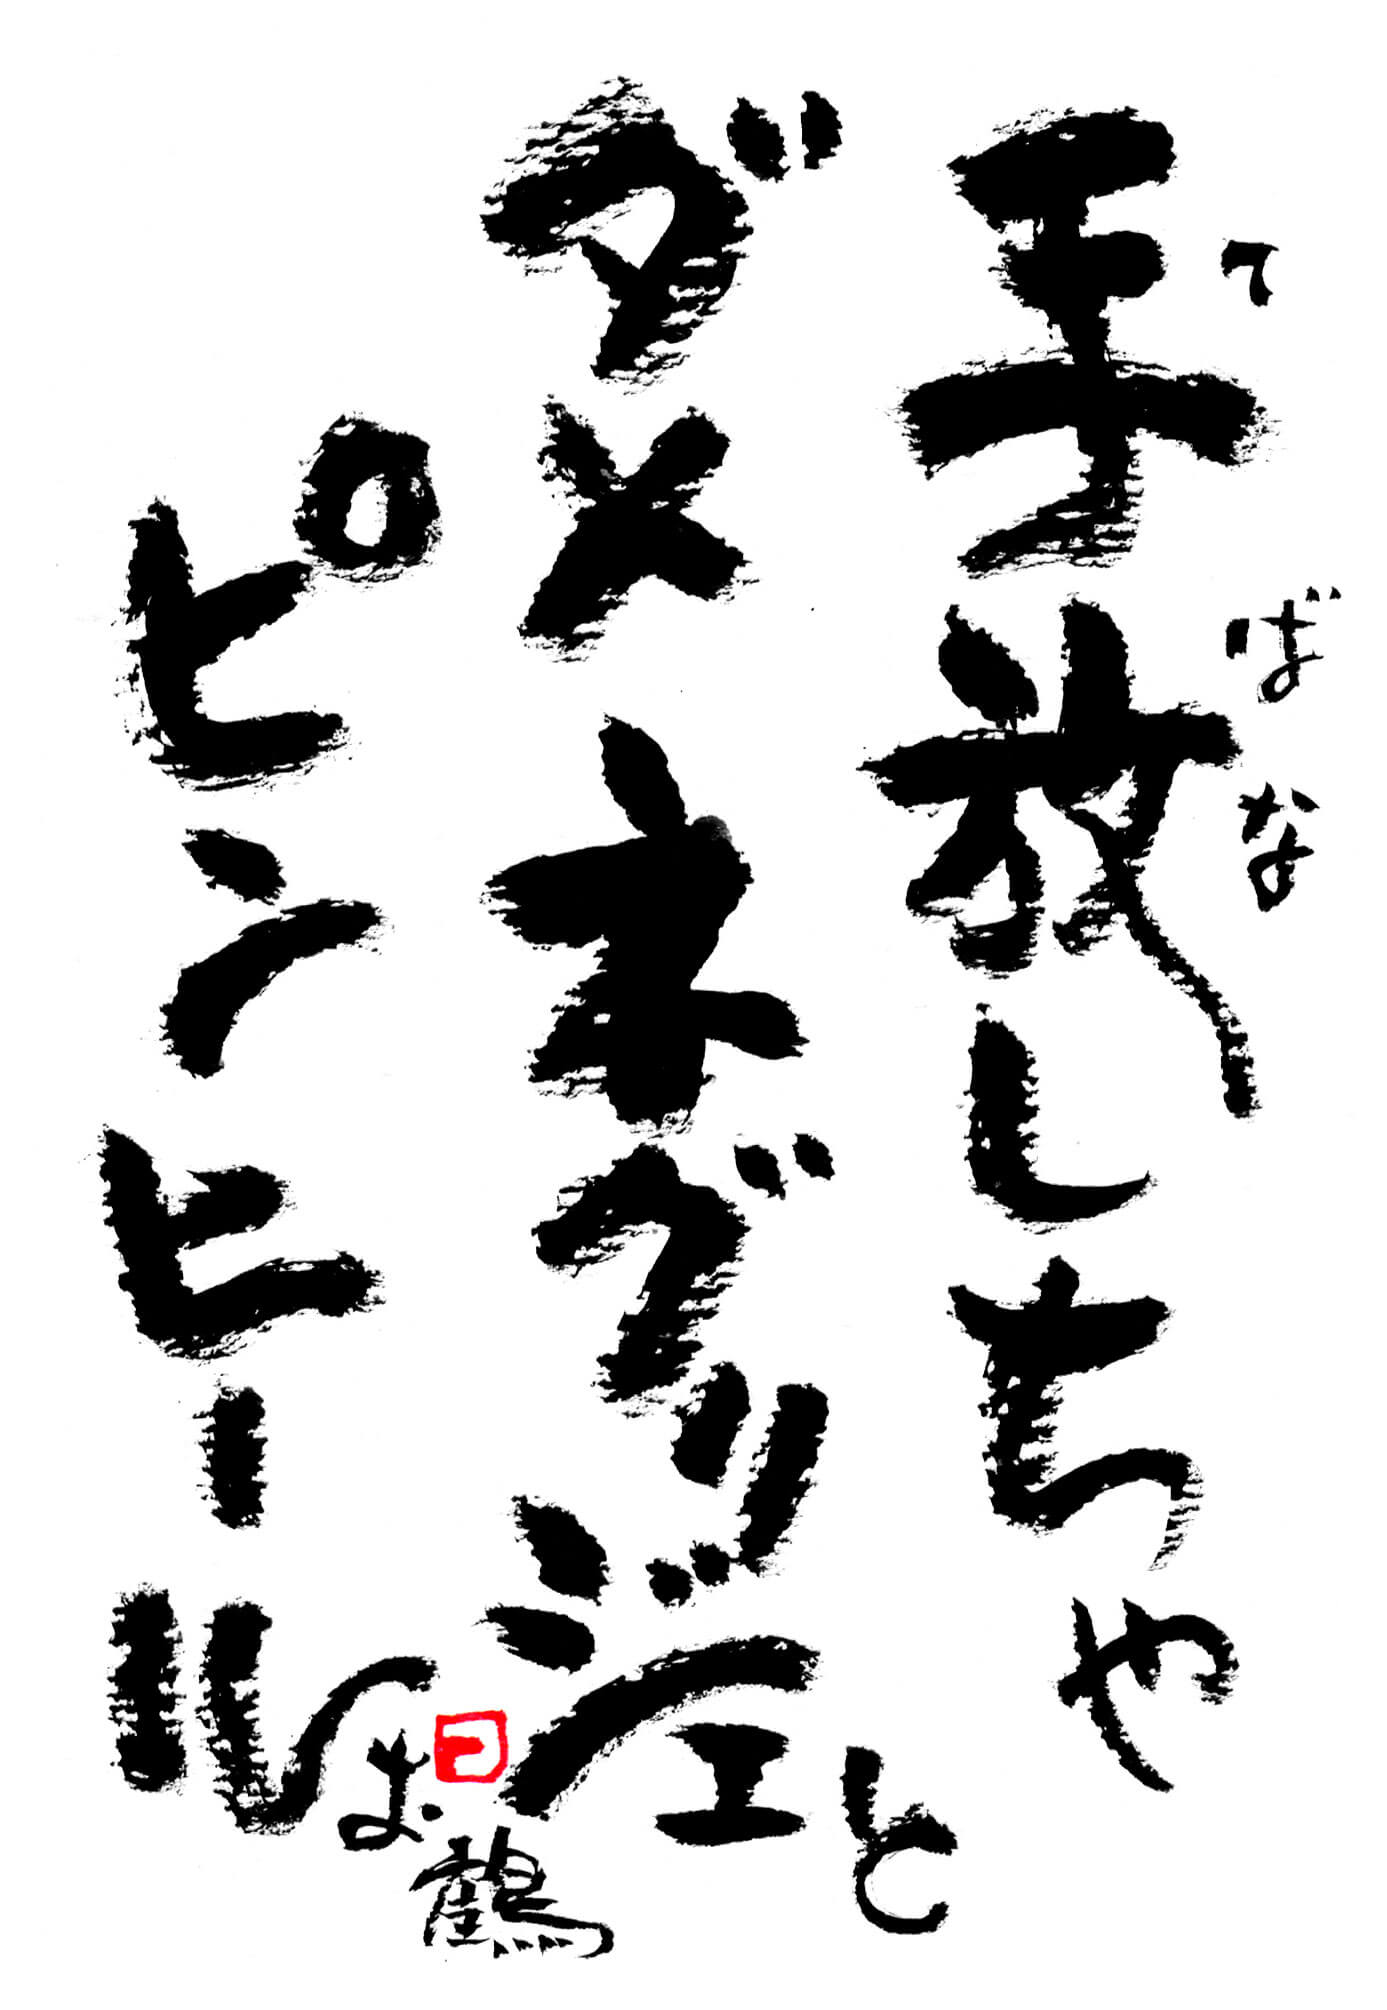 手放しちゃ
て ばな
ダメネグリジェと
ピンヒール
お鶴